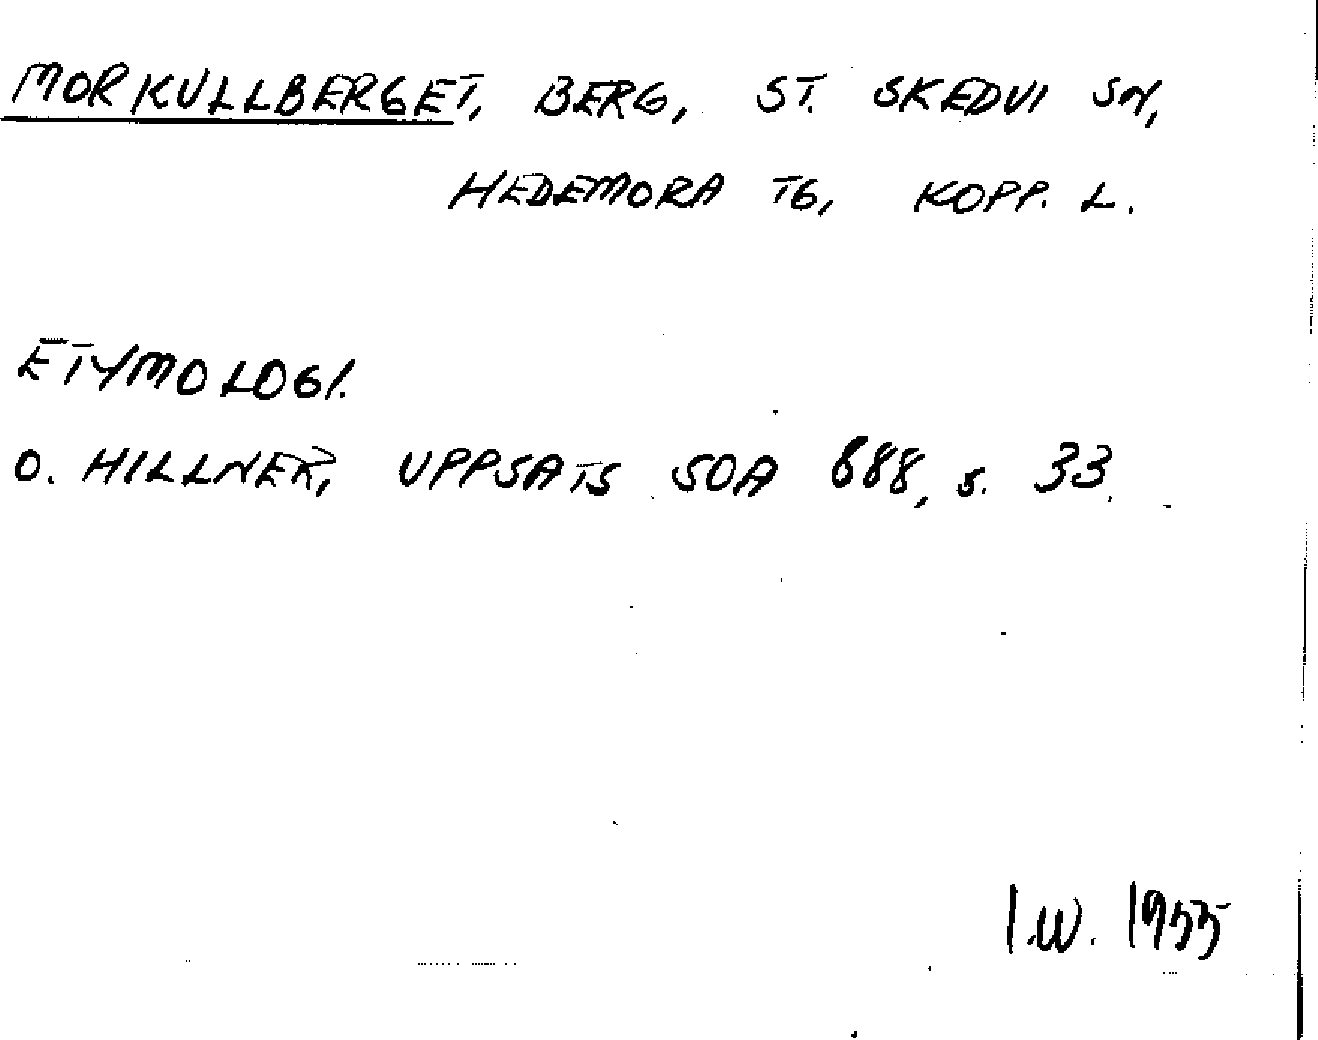 MORKULLBERGET, BERG, ST. SKEDVI SN,
HEDEMORA TG, KOPP. L.
ETYMOLOGI.
O. HILLNER, UPPSATS SOA 688, s. 33.
I.W. 1955